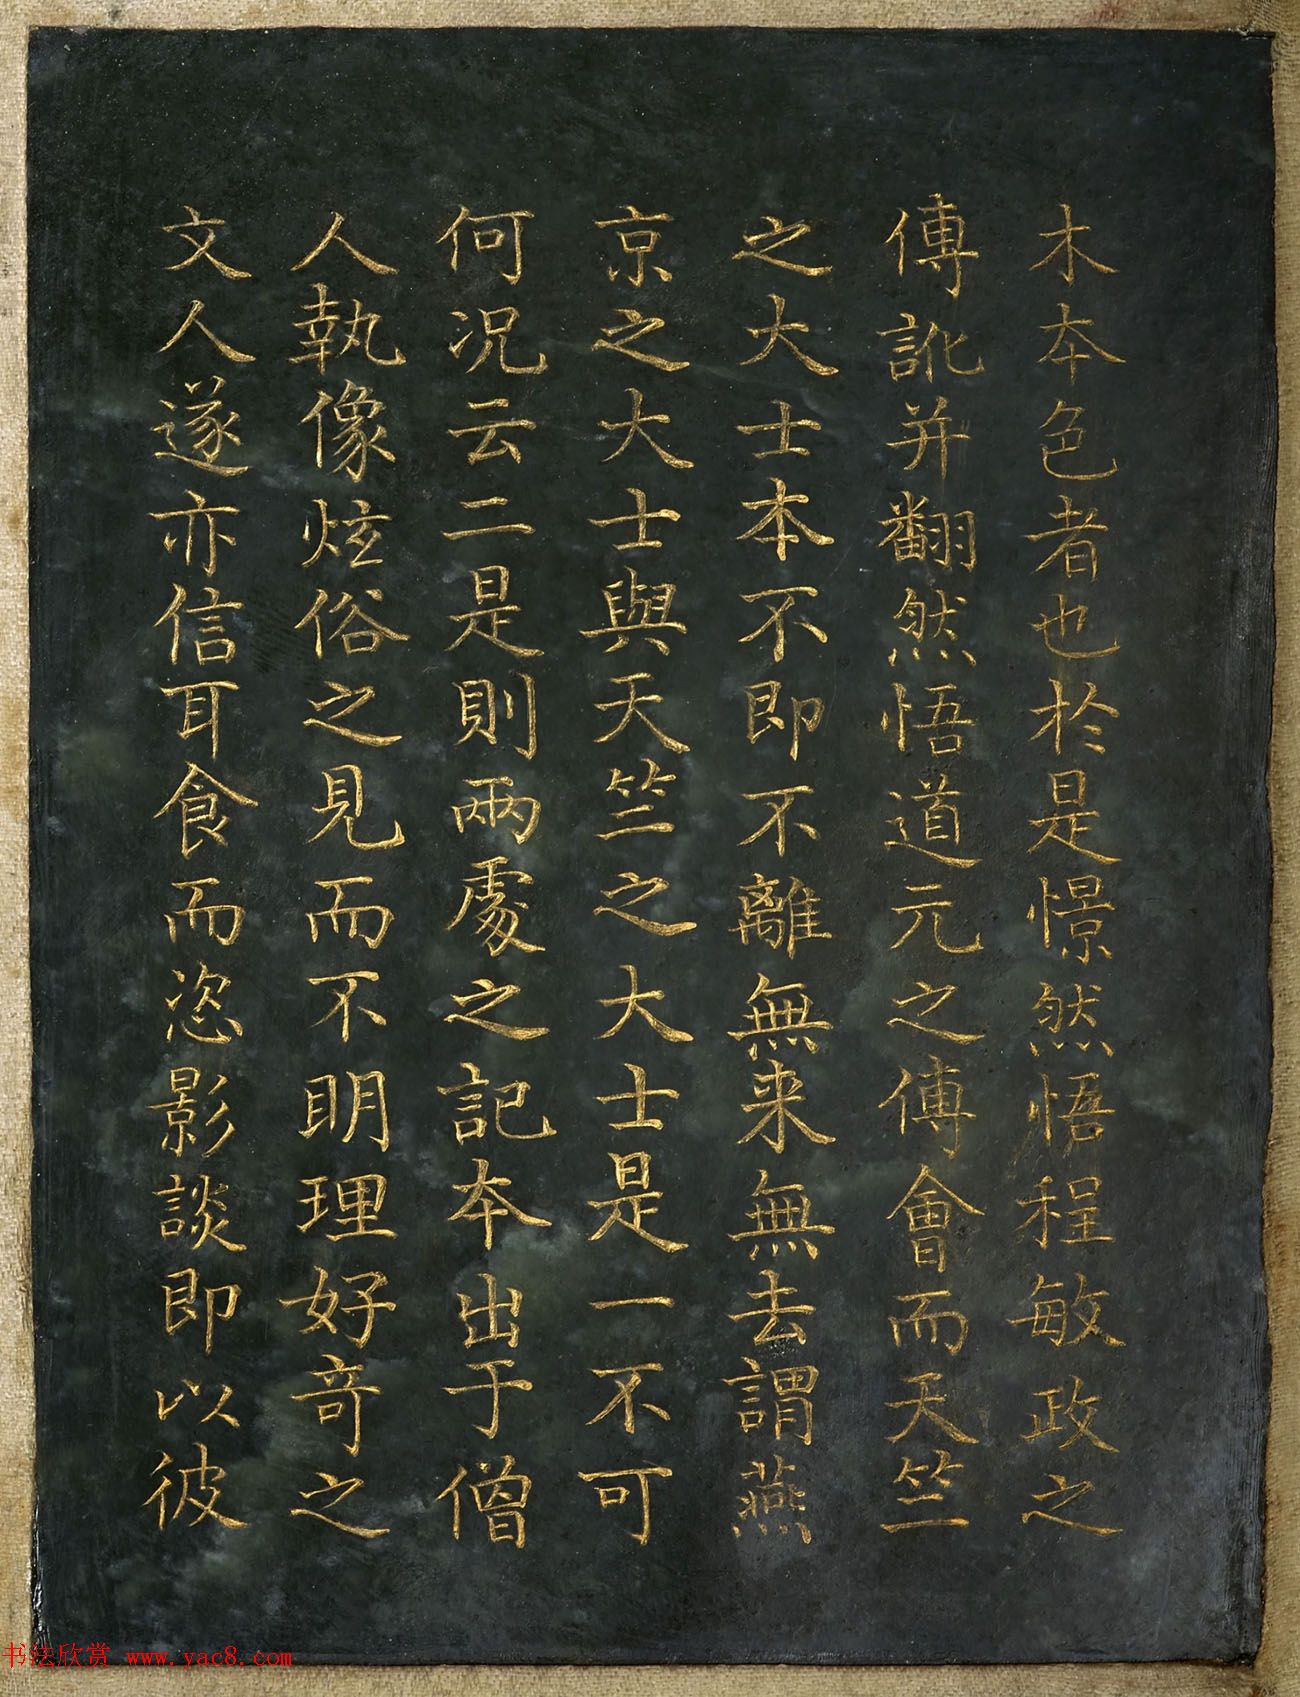 木本色者也於是憬然悟程敏政之
傳訛并翻然悟道元之傅會而天竺
之大士本不即不離無来無去謂燕
京之大士與天竺之大士是一不可
何况云二是則兩處之記本出于僧
人執像炫俗之見而不明理好奇之
文人遂亦信耳食而恣影談即以彼
书法欣赏 www.yac8.com